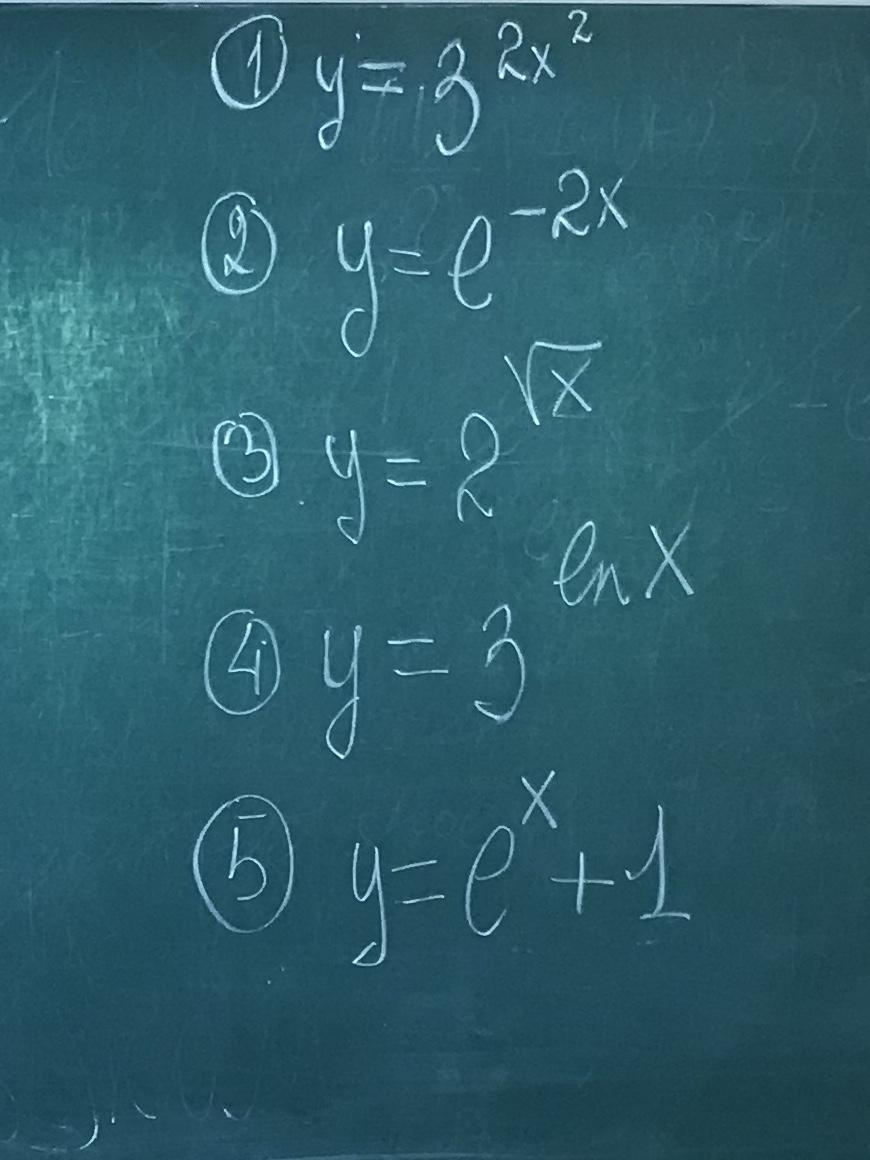 ① y = 3^{2x^2}
② y = e^{-2x}
③ y = 2^{\sqrt{x}}
④ y = 3^{ln x}
⑤ y = e^x + 1